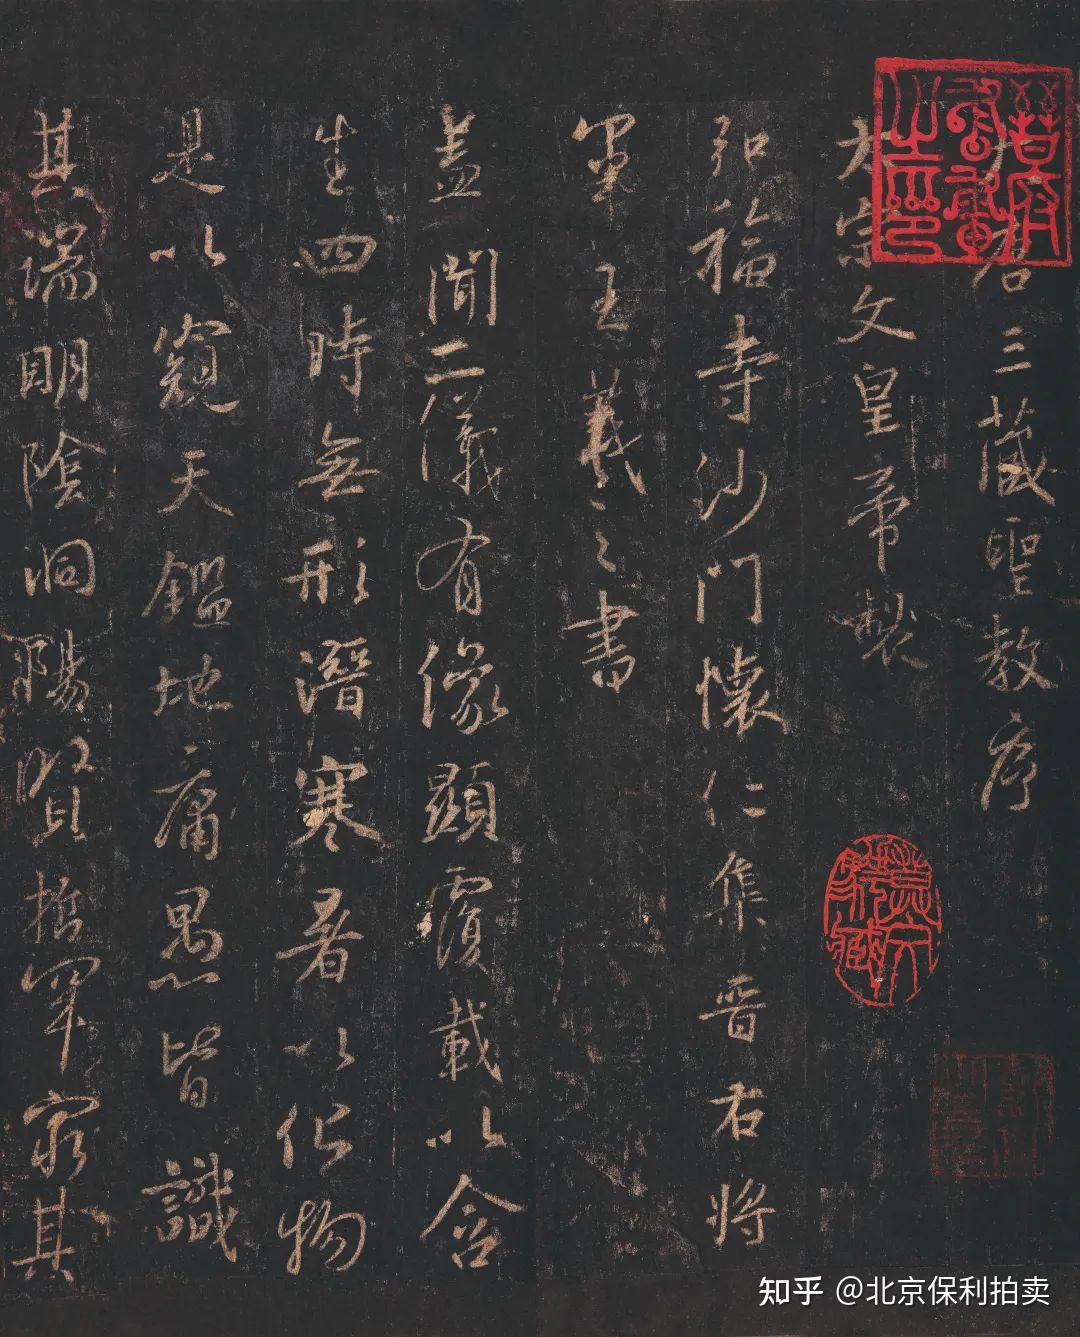 大唐三藏聖教序
太宗文皇帝製
弘福寺沙門懷仁集晉右將
軍王羲之書
蓋聞二儀有像顯覆載以含
生四時無形潛寒暑以化物
是以窺天鑑地庸愚皆識
其端明陰洞陽賢哲罕窮其
晉府書畫之印
知乎 @北京保利拍卖